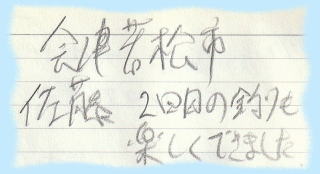 会津若松市
佐藤 2回目の釣りも
楽しくできました